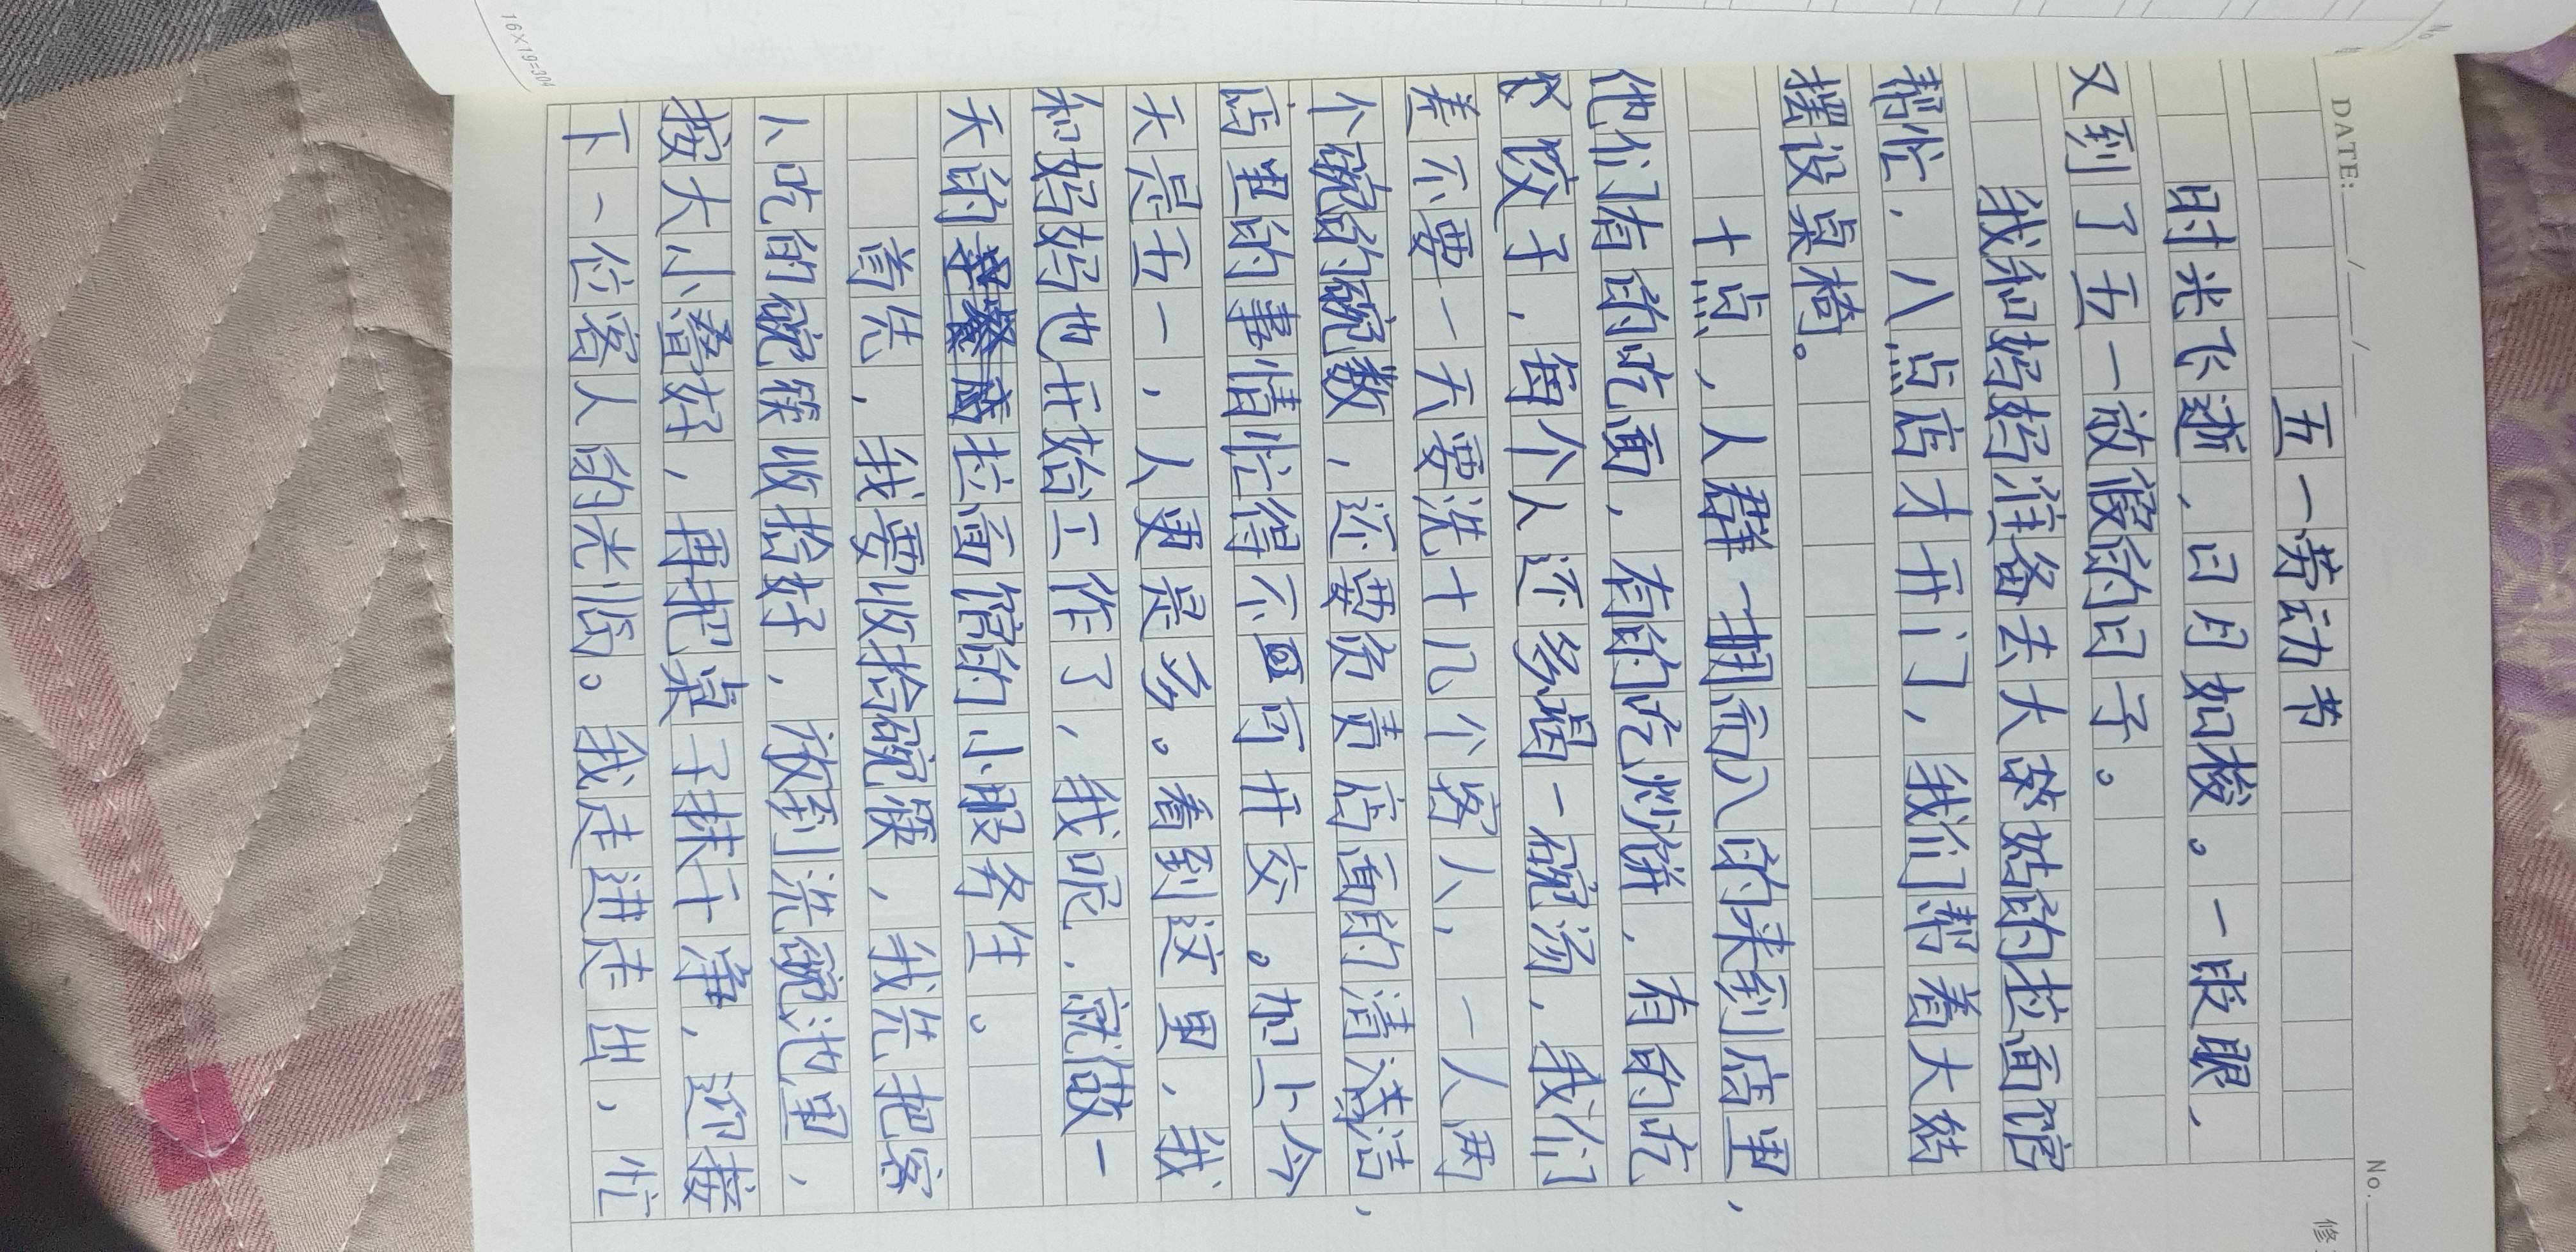 16×19=304
DATE: / /
No.
五一劳动节
时光飞逝，日月如梭。一眨眼，
又到了五一放假的日子。
我和妈妈准备去大爷姑的拉面馆
帮忙，八点店才开门，我们帮着大姑
摆设桌椅。
十点，人群一拥而入的来到店里，
他们有的吃面，有的吃炒饼，有的吃
饺子，每个人还多喝一碗汤，我们
差不要一天要洗十几个客人，一人两
个碗的碗数，还要负责店面的清洁，
店里的事情忙得不可开交。加上今
天是五一，人更是多。看到这里，我
和妈妈也开始工作了，我呢，就做一
天的拉面馆的小服务生。
首先，我要收拾碗筷，我先把客
人吃的碗筷收拾好，放到洗碗池里，
按大小叠好，再把桌子抹干净，迎接
下一位客人的光临。我走进走出，忙